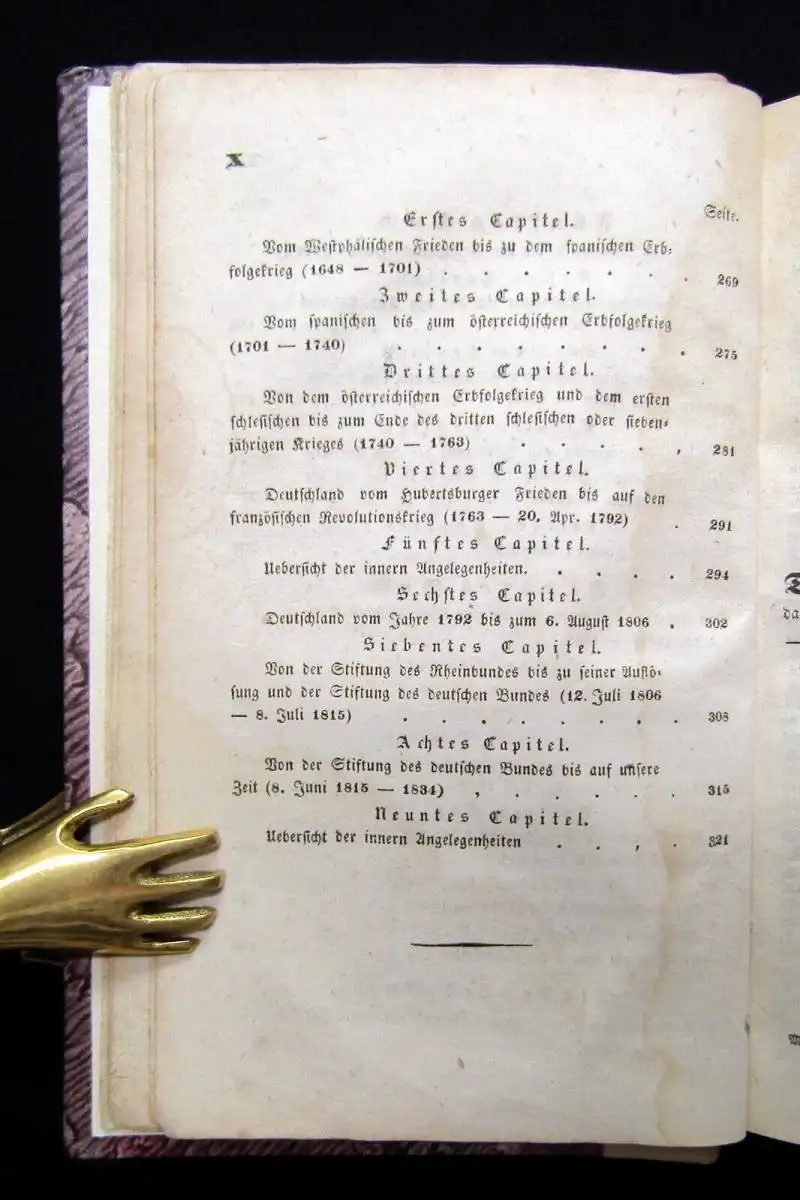 X
Seite.
Erstes Capitel.
Vom Westphälischen Frieden bis zu dem spanischen Erb-
folgekrieg (1648 — 1701) . . . . . . . 269
Zweites Capitel.
Vom spanischen bis zum österreichischen Erbfolgekrieg
(1701 — 1740) . . . . . . . . 275
Drittes Capitel.
Von dem österreichischen Erbfolgekrieg und dem ersten
schlesischen bis zum Ende des dritten schlesischen oder sieben-
jährigen Krieges (1740 — 1763) . . . . , 281
Viertes Capitel.
Deutschland vom Hubertsburger Frieden bis auf den
französischen Revolutionskrieg (1763 — 20. Apr. 1792) . 291
Fünftes Capitel.
Uebersicht der innern Angelegenheiten. . . . . 294
Sechstes Capitel.
Deutschland vom Jahre 1792 bis zum 6. August 1806 . 302
Siebentes Capitel.
Von der Stiftung des Rheinbundes bis zu seiner Auflö-
sung und der Stiftung des deutschen Bundes (12. Juli 1806
— 8. Juli 1815) . . . . . . . . 308
Achtes Capitel.
Von der Stiftung des deutschen Bundes bis auf unsere
Zeit (8. Juni 1815 — 1834) , . . . . . 315
Neuntes Capitel.
Uebersicht der innern Angelegenheiten . . , . 321
da